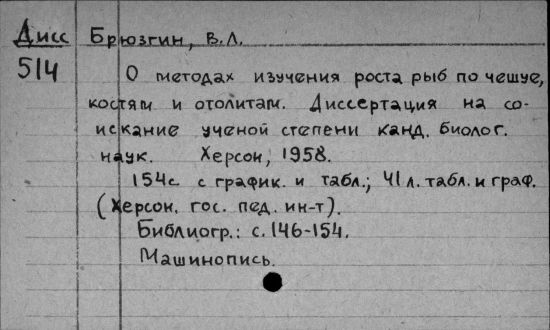 Дисс Брюзгин, В.Л.
514 О методах изучения роста рыб по чешуе,
костям и отолитам. Диссертация на со-
искание ученой степени канд. биолог.
наук. Херсон, 1958.
154с с график. и табл.; 41 л. табл. и граф.
(Херсон. гос. пед. ин-т).
Библиогр.: с. 146-154.
Машинопись.